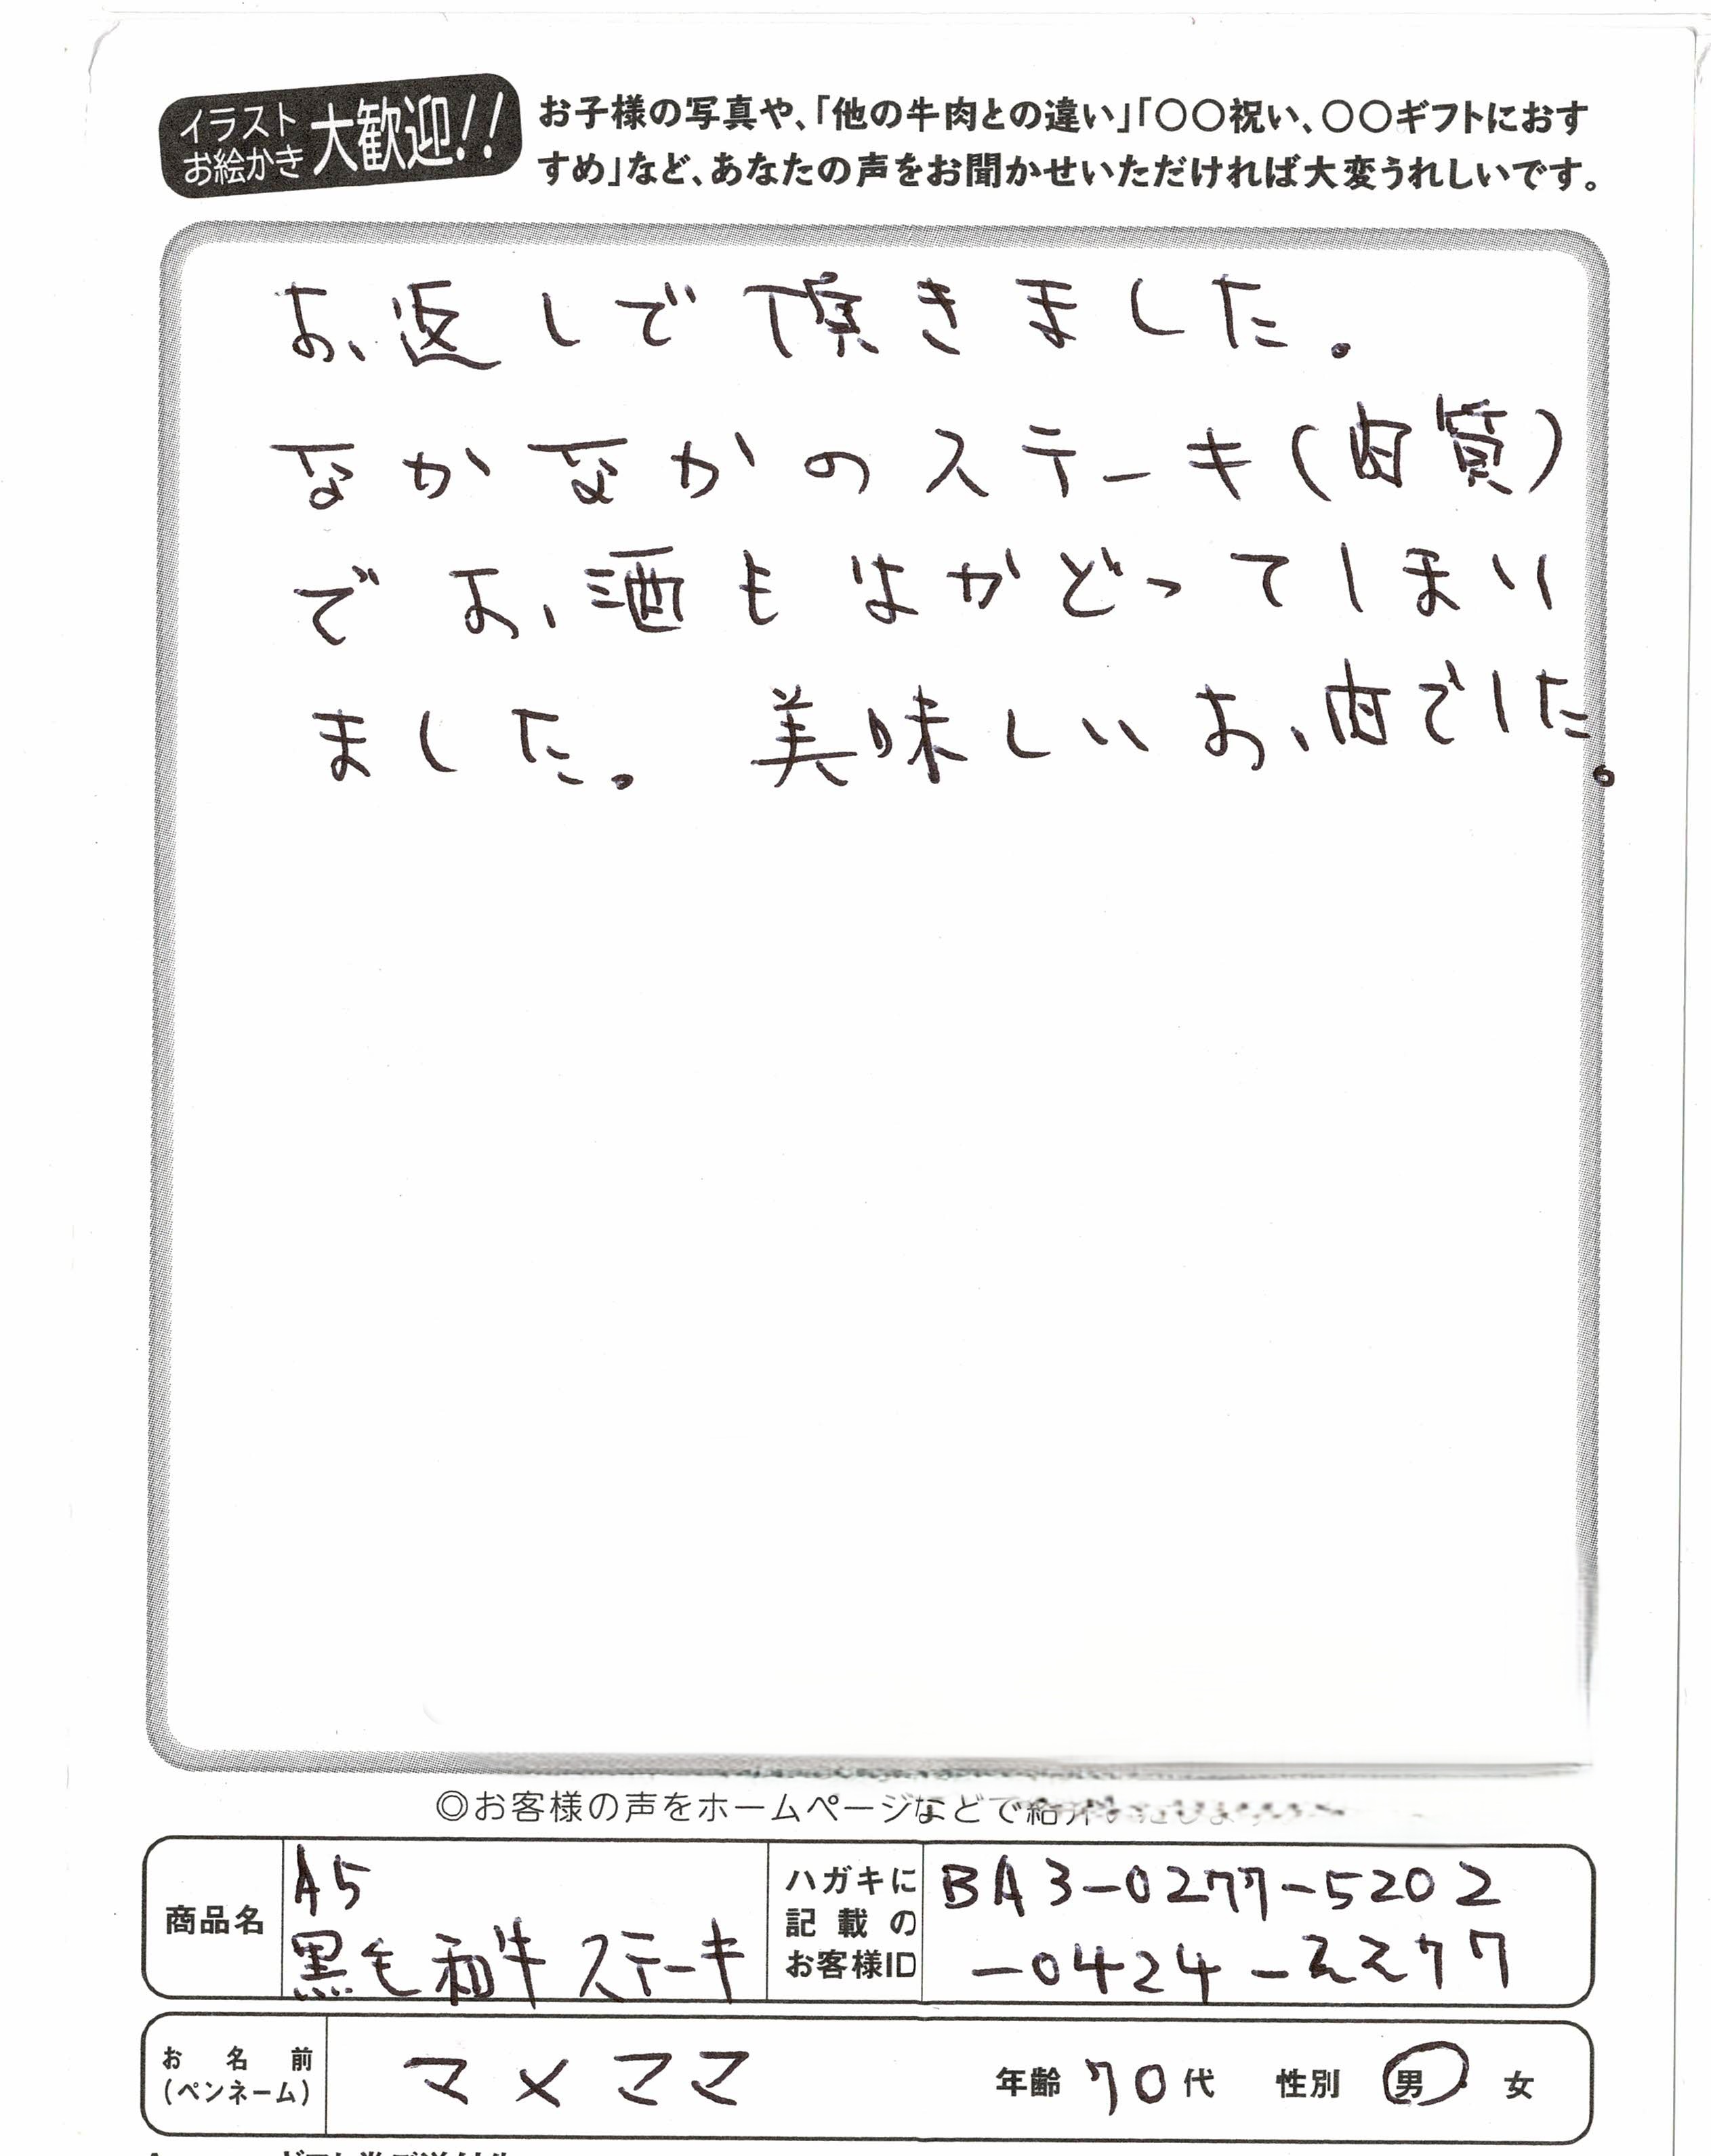 イラスト
お絵かき
大歓迎!!
お子様の写真や、「他の牛肉との違い」「〇〇祝い、〇〇ギフトにおす
すめ」など、あなたの声をお聞かせいただければ大変うれしいです。
お返しで頂きました。
なかなかのステーキ(肉質)
でお酒もはかどってしまい
ました。美味しいお肉でした。
◎お客様の声をホームページなどで紹介
商品名
A5
黒毛和牛ステーキ
ハガキに
記載の
お客様ID
BA3-0277-5202
-0424-2277
お名前
(ペンネーム)
マメママ
年齢 70代 性別 男 女